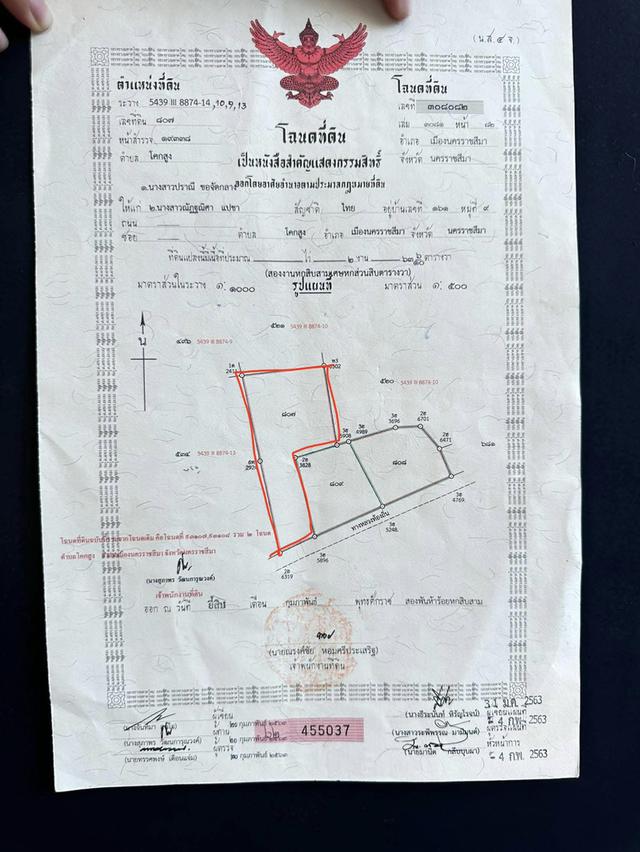 (น.ส.๔ จ.)
ตำแหน่งที่ดิน
ระวาง 5439 III 8874-14 ,10,9,13
เลขที่ดิน ๘๐๗
หน้าสำรวจ ๑๙๓๓๘
ตำบล โคกสูง
โฉนดที่ดิน
เลขที่ ๓๐๘๐๘๒
เล่ม ๓๐๘๑ หน้า ๘๒
อำเภอ เมืองนครราชสีมา
จังหวัด นครราชสีมา
โฉนดที่ดิน
เป็นหนังสือสำคัญแสดงกรรมสิทธิ์
ออกโดยอาศัยอำนาจตามประมวลกฎหมายที่ดิน
๑.นางสาวปราณี ขอจัดกลาง
ให้แก่ ๒.นางสาวณัฏฐณิศา แปขา สัญชาติ ไทย อยู่บ้านเลขที่ ๑๖๑ หมู่ที่ ๙
ถนน
ซอย ตำบล โคกสูง อำเภอ เมืองนครราชสีมา จังหวัด นครราชสีมา
ที่ดินแปลงนี้มีเนื้อที่ประมาณ ไร่ ๒ งาน ๖๓ ๖/๑๐ ตารางวา
(สองงานหกสิบสามเศษหกส่วนสิบตารางวา)
มาตราส่วนในระวาง ๑: ๑๐๐๐ รูปแผนที่ มาตราส่วน ๑: ๕๐๐
น
๕๒๑ 5439 III 8874-10
๔๙๖ 5439 III 8874-9
๕๒๐ 5439 III 8874-10
๕๓๔ 5439 III 8874-13
๖๘๑
๘๐๗
๘๐๙
๘๐๘
3828
4989
3696
6701
6471
4769
5248
5896
6319
ทางหลวงท้องถิ่น
ตำบลโคกสูง อำเภอเมืองนครราชสีมา จังหวัดนครราชสีมา
(นางสุภาพร วัฒนการุณวงค์)
เจ้าพนักงานที่ดิน
ออก ณ วันที่ ยี่สิบ เดือน กุมภาพันธ์ พุทธศักราช สองพันห้าร้อยหกสิบสาม
(นายณรงค์ชัย หอมศรีประเสริฐ)
เจ้าพนักงานที่ดิน
ผู้เขียน
๒๐ กุมภาพันธ์ ๒๕๖๓
ผู้ทาน
(นางสุภาพร วัฒนการุณวงค์) ๒๐ กุมภาพันธ์ ๒๕๖๓
ผู้ตรวจ
(นายทรรศพงษ์ เดือนแจ่ม) ๒๐ กุมภาพันธ์ ๒๕๖๓
455037
31 ม.ค. 2563
ผู้เขียนแผนที่
- 4 ก.พ. 2563
ผู้ตรวจแผนที่
หัวหน้าการ
- 4 ก.พ. 2563